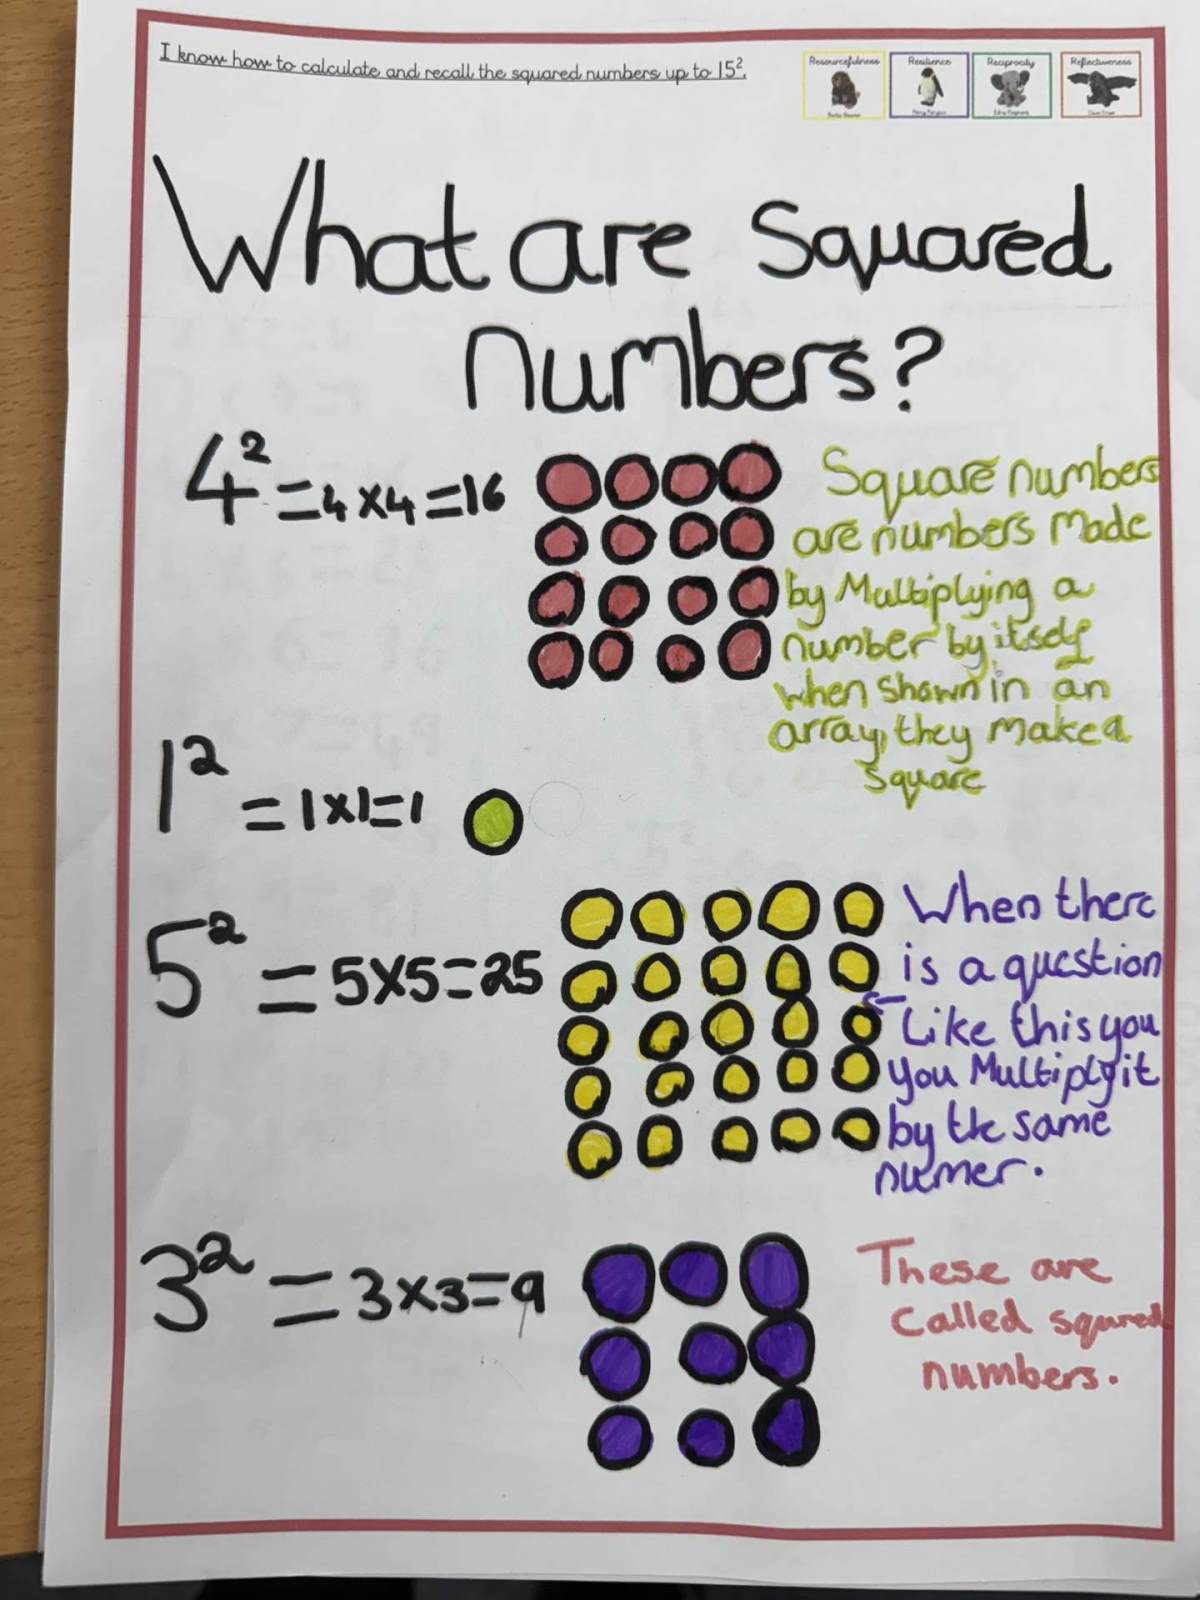 I know how to calculate and recall the squared numbers up to 15².
Resourcefulness
Resilience
Reciprocity
Reflectiveness
What are Squared
numbers?
4² = 4×4 = 16
Square numbers
are numbers made
by Multiplying a
number by itself
when shown in an
array, they make a
square
1² = 1×1=1
5² = 5×5=25
When there
is a question
← Like this you
you Multiply it
by the same
numer.
3² = 3×3=9
These are
called squred
numbers.